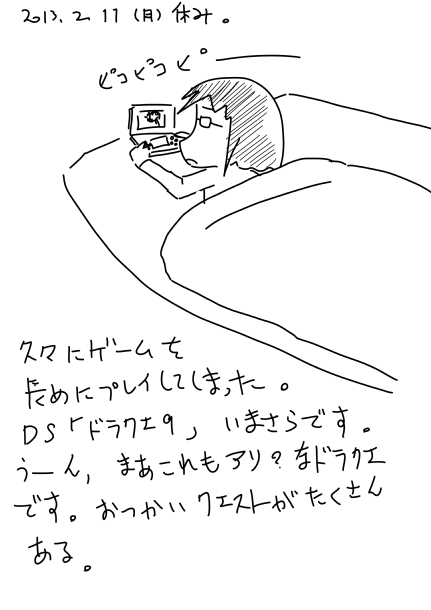 2013. 2. 11 (月) 休み。
ピコピコピ
久々にゲームを
長めにプレイしてしまった。
DS「ドラクエ9」、いまさらです。
うーん、まあこれもアリ？なドラクエ
です。おつかいクエストがたくさん
ある。